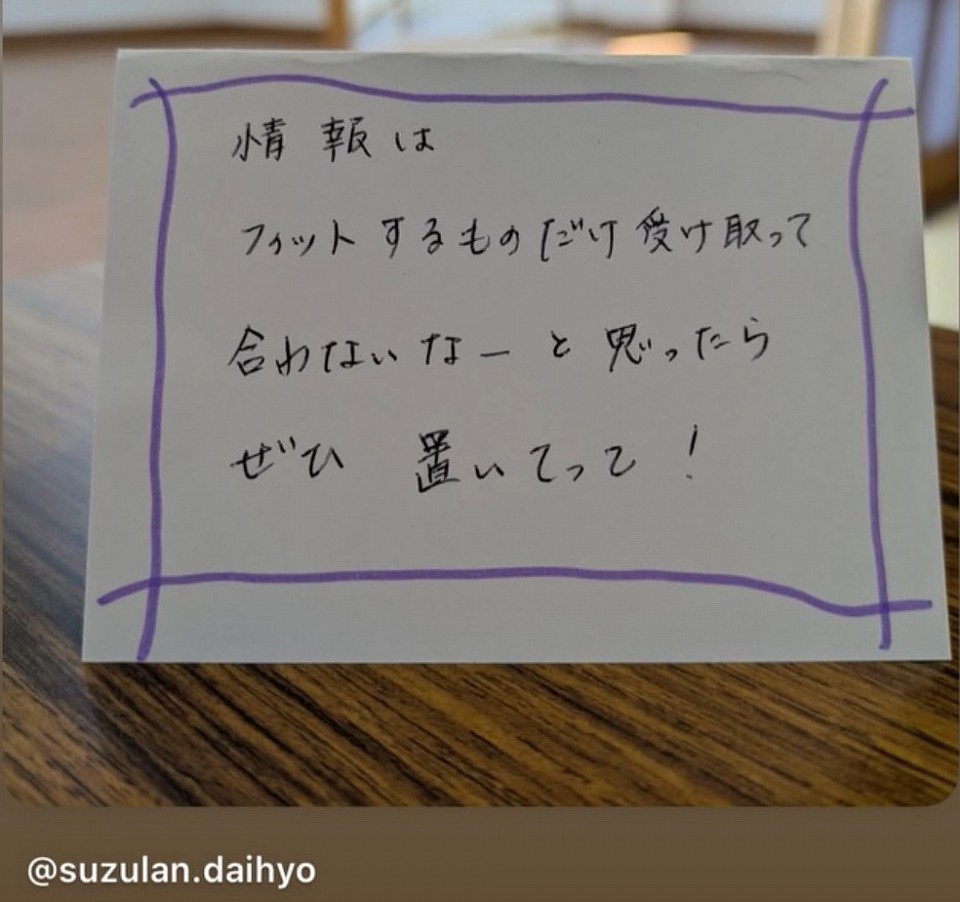 情報は
フィットするものだけ受け取って
合わないなーと思ったら
ぜひ 置いてって!
@suzulan.daihyo